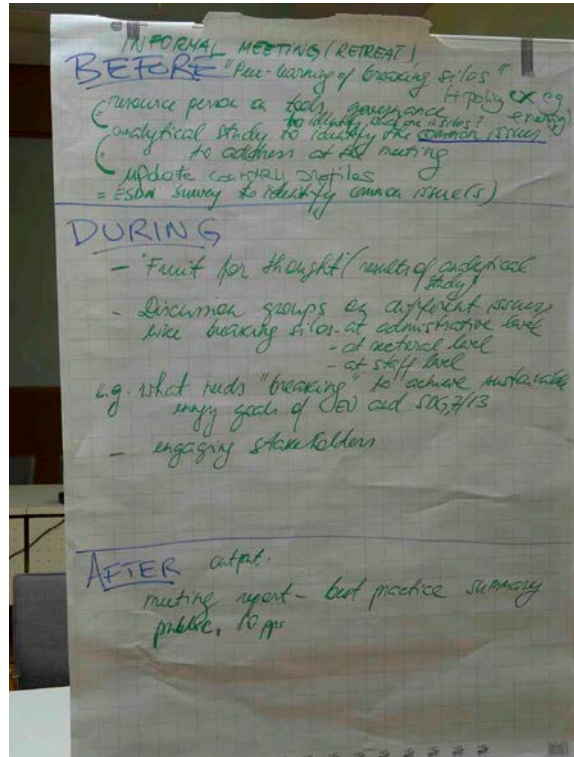 INFORMAL MEETING (RETREAT)
BEFORE "Peer-learning of breaking silos"
(+policy ex eg
- resource person on tools, governance energy)
to identify what are silos?
- analytical study to identify the common issues
to address at the meeting
- update country profiles
= ESDN survey to identify common issue(s)
DURING
- "Fruit for thought" (results of analytical
study)
- Discussion groups on different issues,
like breaking silos - at administrative level
- at sectoral level
- at staff level
e.g. what needs "breaking" to achieve sustainable
energy goals of EU and SDG 7/13
- engaging stakeholders
AFTER output.
meeting report - best practice summary
public, 10 pps